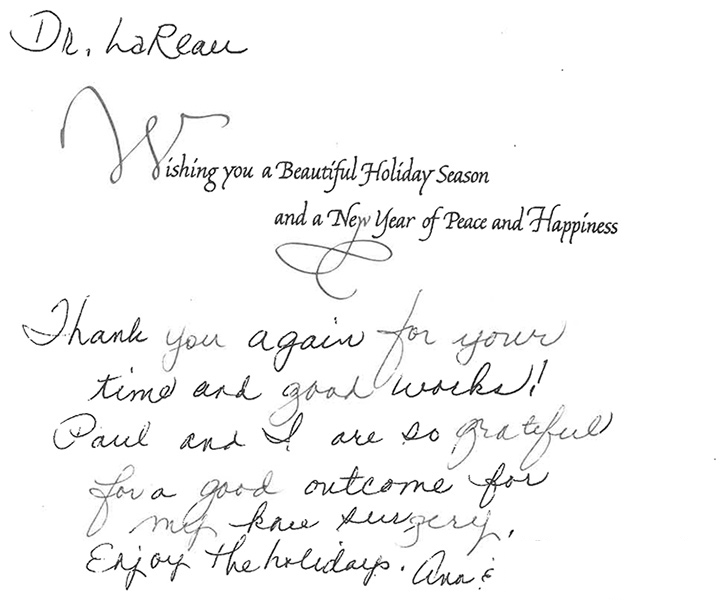 Dr. LaReau
Wishing you a Beautiful Holiday Season
and a New Year of Peace and Happiness
Thank you again for your
time and good works!
Paul and I are so grateful
for a good outcome for
my knee surgery.
Enjoy the holidays. Ann &